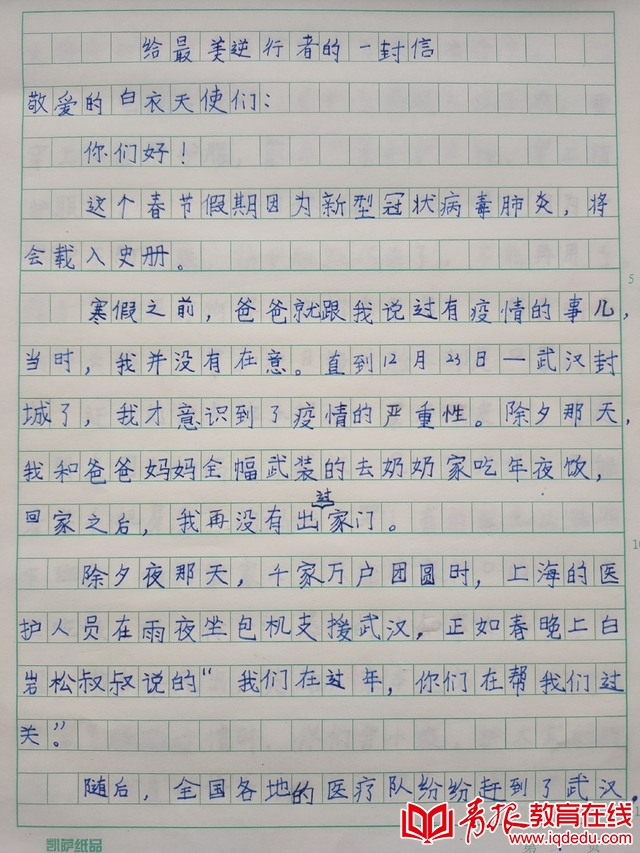 给最美逆行者的一封信
敬爱的白衣天使们：
你们好！
这个春节假期因为新型冠状病毒肺炎，将
会载入史册。
寒假之前，爸爸就跟我说过有疫情的事儿，
当时，我并没有在意。直到12月23日一武汉封
城了，我才意识到了疫情的严重性。除夕那天，
我和爸爸妈妈全幅武装的去奶奶家吃年夜饭，
回家之后，我再没有出过家门。
除夕夜那天，千家万户团圆时，上海的医
护人员在雨夜坐包机支援武汉，正如春晚上白
岩松叔叔说的“我们在过年，你们在帮我们过
关”。
随后，全国各地的医疗队纷纷赶到了武汉，
5
10
凯萨纸品
青报教育在线
www.iqdedu.com